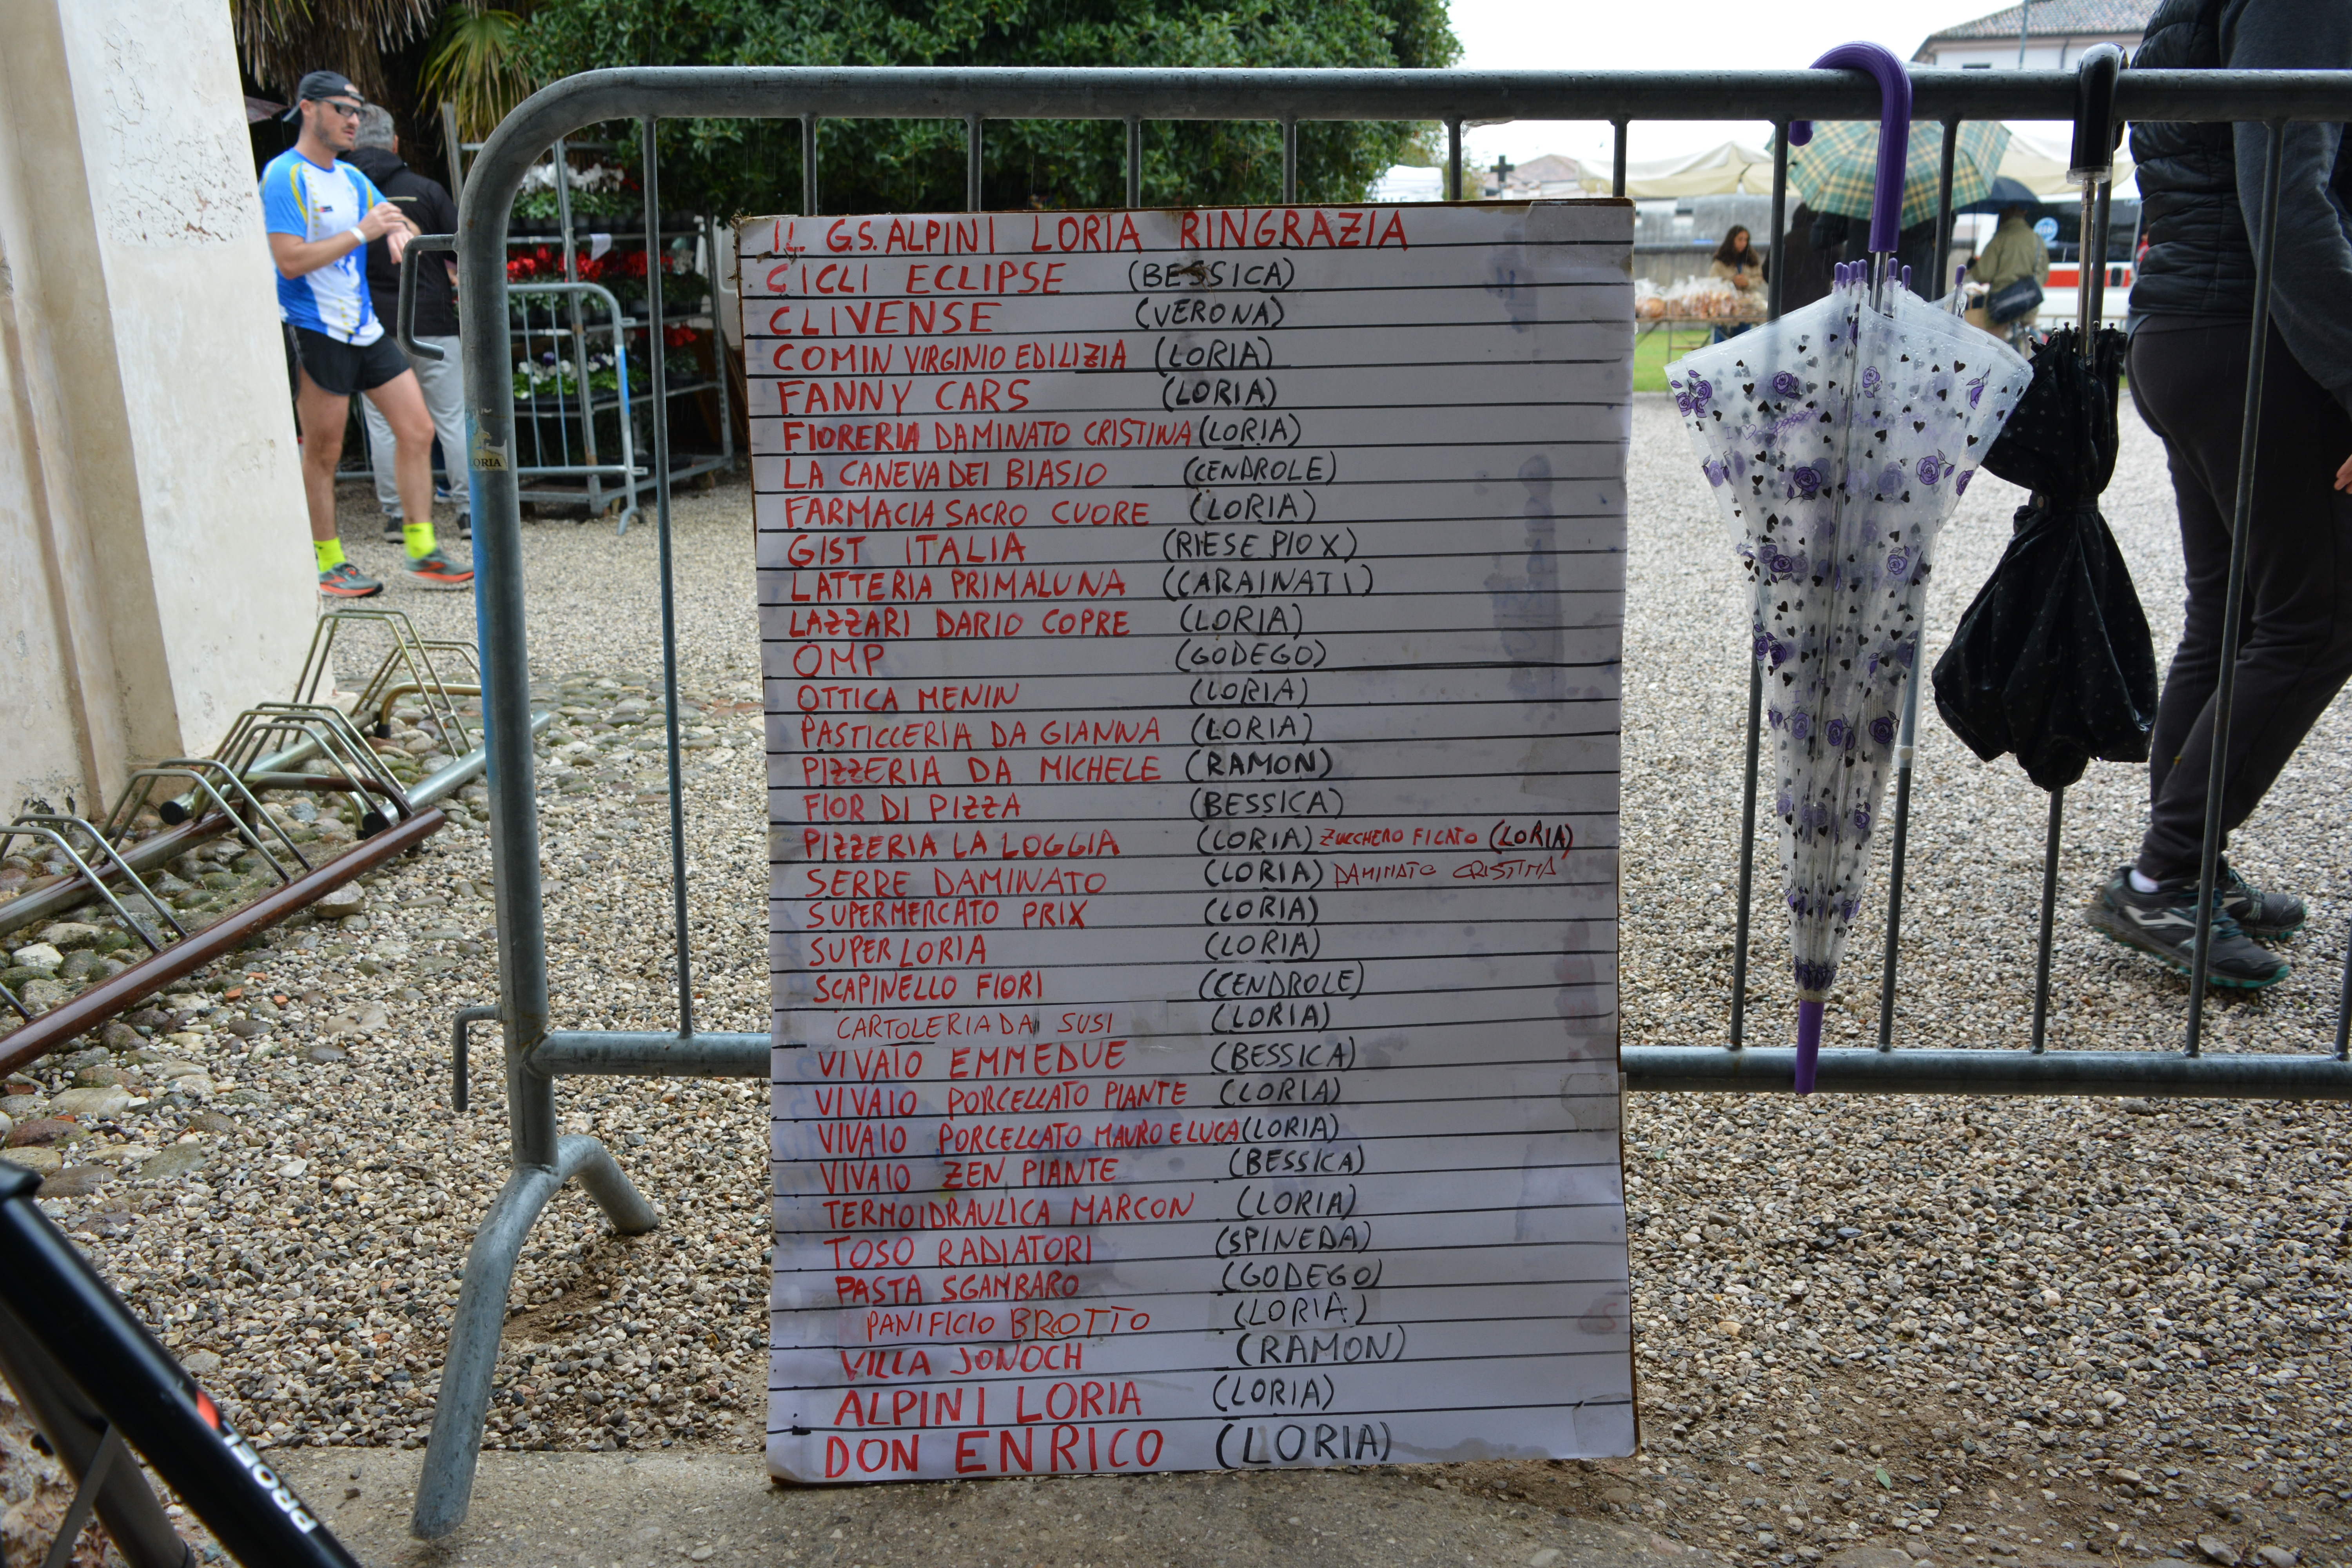 IL G.S. ALPINI LORIA RINGRAZIA
CICLI ECLIPSE (BESSICA)
CLIVENSE (VERONA)
COMIN VIRGINIO EDILIZIA (LORIA)
FANNY CARS (LORIA)
FIORERIA DAMINATO CRISTINA (LORIA)
LA CANEVA DEI BIASIO (CENDROLE)
FARMACIA SACRO CUORE (LORIA)
GIST ITALIA (RIESE PIO X)
LATTERIA PRIMALUNA (CARAINATI)
LAZZARI DARIO COPRE (LORIA)
OMP (GODEGO)
OTTICA MENIN (LORIA)
PASTICCERIA DA GIANNA (LORIA)
PIZZERIA DA MICHELE (RAMON)
FIOR DI PIZZA (BESSICA)
PIZZERIA LA LOGGIA (LORIA) ZUCCHERO FILATO (LORIA)
SERRE DAMINATO (LORIA) DAMINATO CRISTINA
SUPERMERCATO PRIX (LORIA)
SUPER LORIA (LORIA)
SCAPINELLO FIORI (CENDROLE)
CARTOLERIA DA SUSI (LORIA)
VIVAIO EMMEDUE (BESSICA)
VIVAIO PORCELLATO PIANTE (LORIA)
VIVAIO PORCELLATO MAURO E LUCA (LORIA)
VIVAIO ZEN PIANTE (BESSICA)
TERMOIDRAULICA MARCON (LORIA)
TOSO RADIATORI (SPINEDA)
PASTA SGAMBARO (GODEGO)
PANIFICIO BROTTO (LORIA)
VILLA JONOCH (RAMON)
ALPINI LORIA (LORIA)
DON ENRICO (LORIA)
LORIA
PROFL